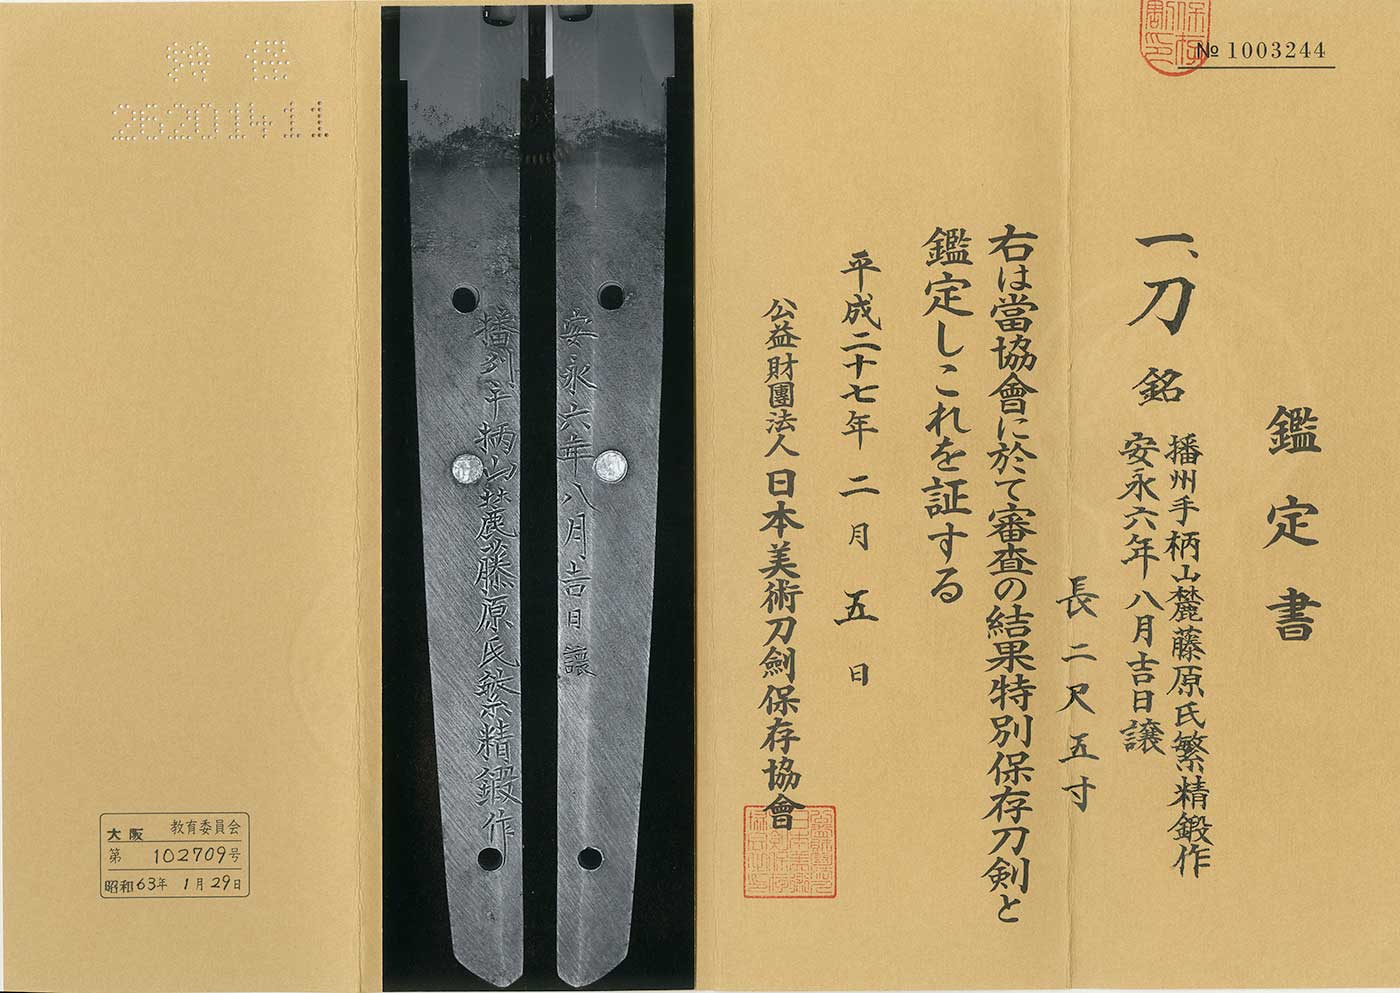 № 1003244
鑑定書
一、刀 銘 播州手柄山麓藤原氏繁精鍛作
安永六年八月吉日譲
長二尺五寸
右は當協會に於て審査の結果特別保存刀剣と
鑑定しこれを証する
平成二十七年二月五日
公益財團法人日本美術刀劍保存協會
安永六年八月吉日譲
播州手柄山麓藤原氏繁精鍛作
26201411
大阪 教育委員会
第 102709号
昭和63年 1月29日